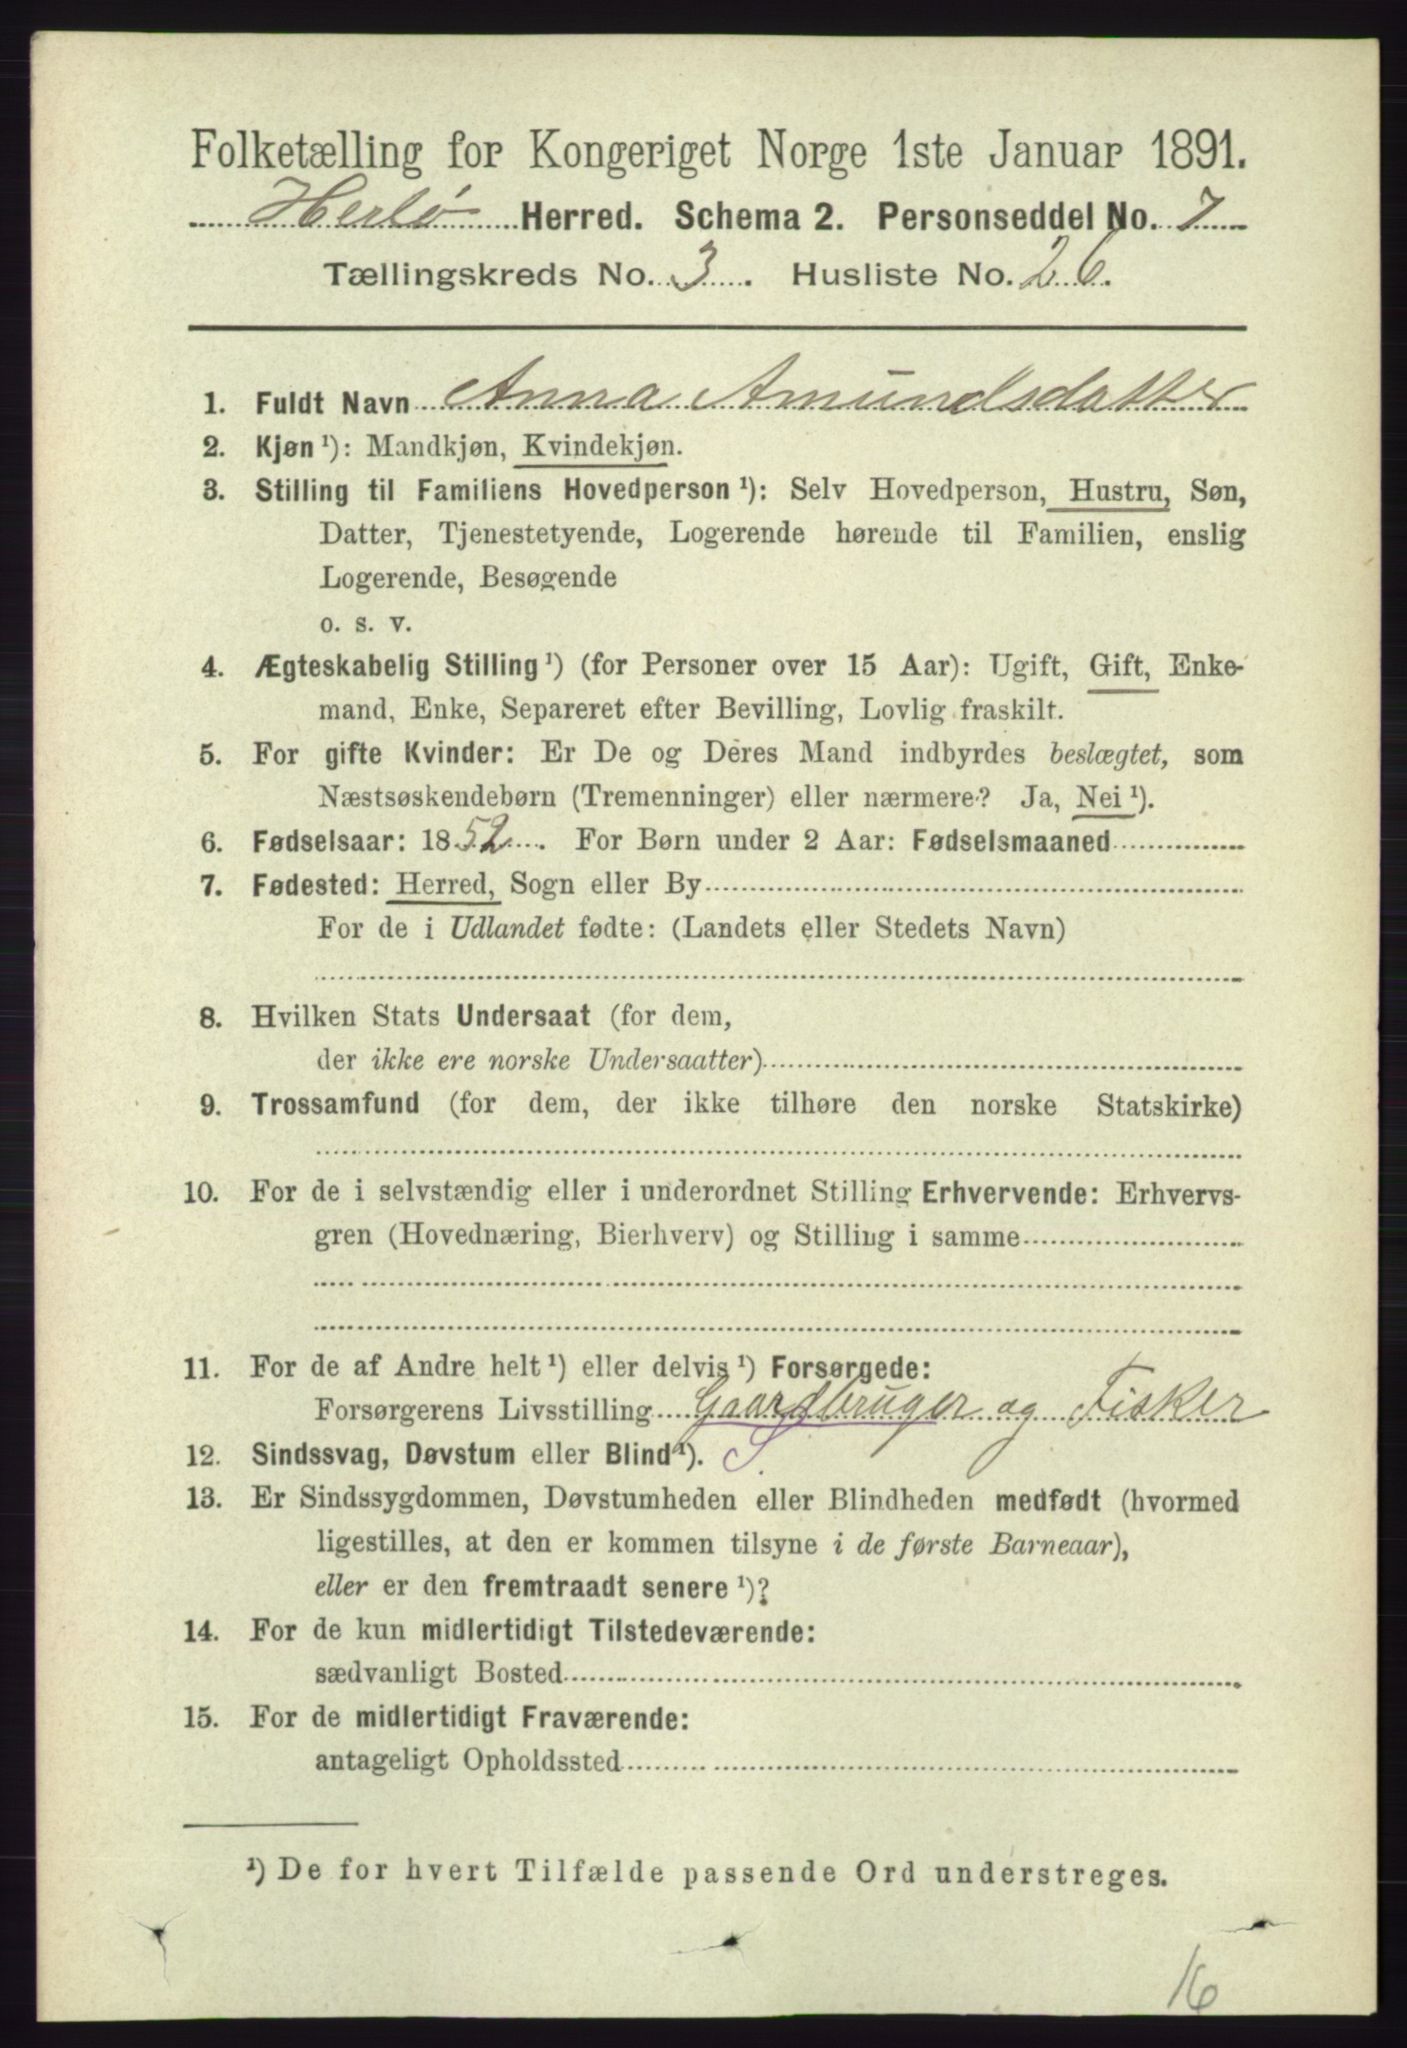 Folketælling for Kongeriget Norge 1ste Januar 1891.
Herlø Herred. Schema 2. Personseddel No. 7
Tællingskreds No. 3. Husliste No. 26.
1. Fuldt Navn Anna Amundsdatter
2. Kjøn ¹): Mandkjøn, Kvindekjøn.
3. Stilling til Familiens Hovedperson ¹): Selv Hovedperson, Hustru, Søn,
Datter, Tjenestetyende, Logerende hørende til Familien, enslig
Logerende, Besøgende
o. s. v.
4. Ægteskabelig Stilling ¹) (for Personer over 15 Aar): Ugift, Gift, Enke-
mand, Enke, Separeret efter Bevilling, Lovlig fraskilt.
5. For gifte Kvinder: Er De og Deres Mand indbyrdes beslægtet, som
Næstsøskendebørn (Tremenninger) eller nærmere? Ja, Nei ¹).
6. Fødselsaar: 1852. For Børn under 2 Aar: Fødselsmaaned
7. Fødested: Herred, Sogn eller By
For de i Udlandet fødte: (Landets eller Stedets Navn)
8. Hvilken Stats Undersaat (for dem,
der ikke ere norske Undersaatter)
9. Trossamfund (for dem, der ikke tilhøre den norske Statskirke)
10. For de i selvstændig eller i underordnet Stilling Erhvervende: Erhvervs-
gren (Hovednæring, Bierhverv) og Stilling i samme
11. For de af Andre helt ¹) eller delvis ¹) Forsørgede:
Forsørgerens Livsstilling Gaardbruger og Fisker
12. Sindssvag, Døvstum eller Blind ¹). S
13. Er Sindssygdommen, Døvstumheden eller Blindheden medfødt (hvormed
ligestilles, at den er kommen tilsyne i de første Barneaar),
eller er den fremtraadt senere ¹)?
14. For de kun midlertidigt Tilstedeværende:
sædvanligt Bosted
15. For de midlertidigt Fraværende:
antageligt Opholdssted
¹) De for hvert Tilfælde passende Ord understreges.
16